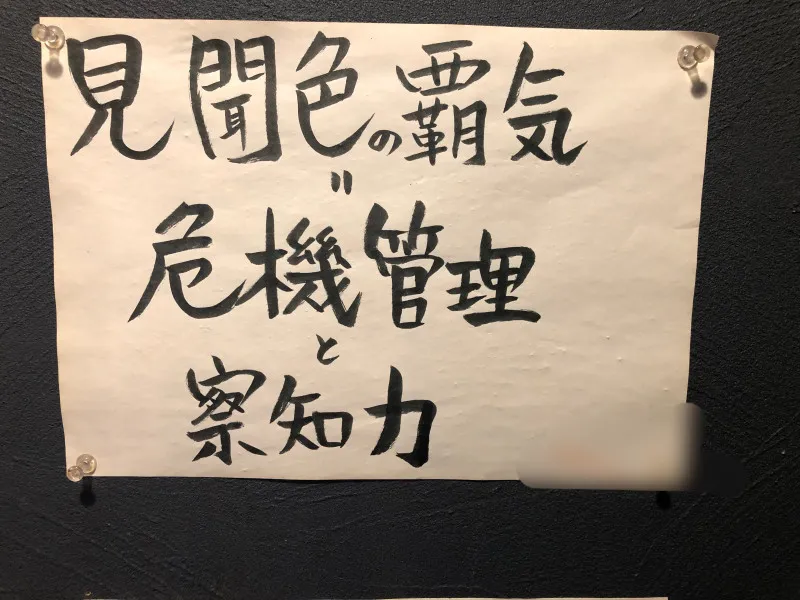 見聞色の覇気
=
危機管理
と
察知力